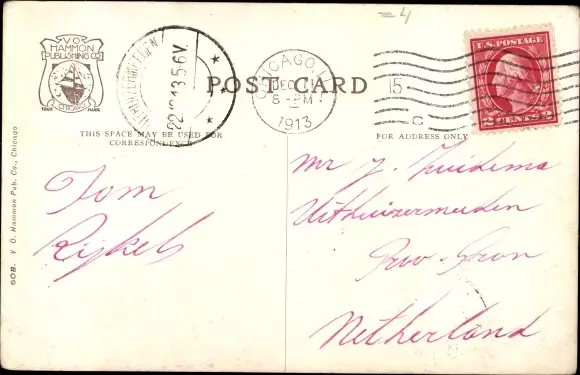 =4
V.O.
HAMMON
PUBLISHING CO.
CHICAGO
TRADE MARK
22.12.13.5-6V.
CHICAGO, ILL.
DEC 11
8-PM
1913
15-
C
U.S. POSTAGE
2 CENTS 2
POST CARD
THIS SPACE MAY BE USED FOR
CORRESPONDENCE
FOR ADDRESS ONLY
50B. V. O. Hammon Pub. Co., Chicago
Tom
Rijkels
Mr J. Zuidema
Uithuizermeeden
Prov. Gron
Netherland